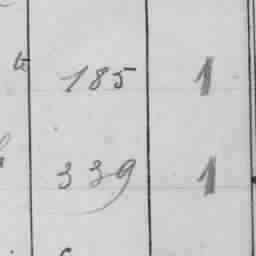 185 1
339 1